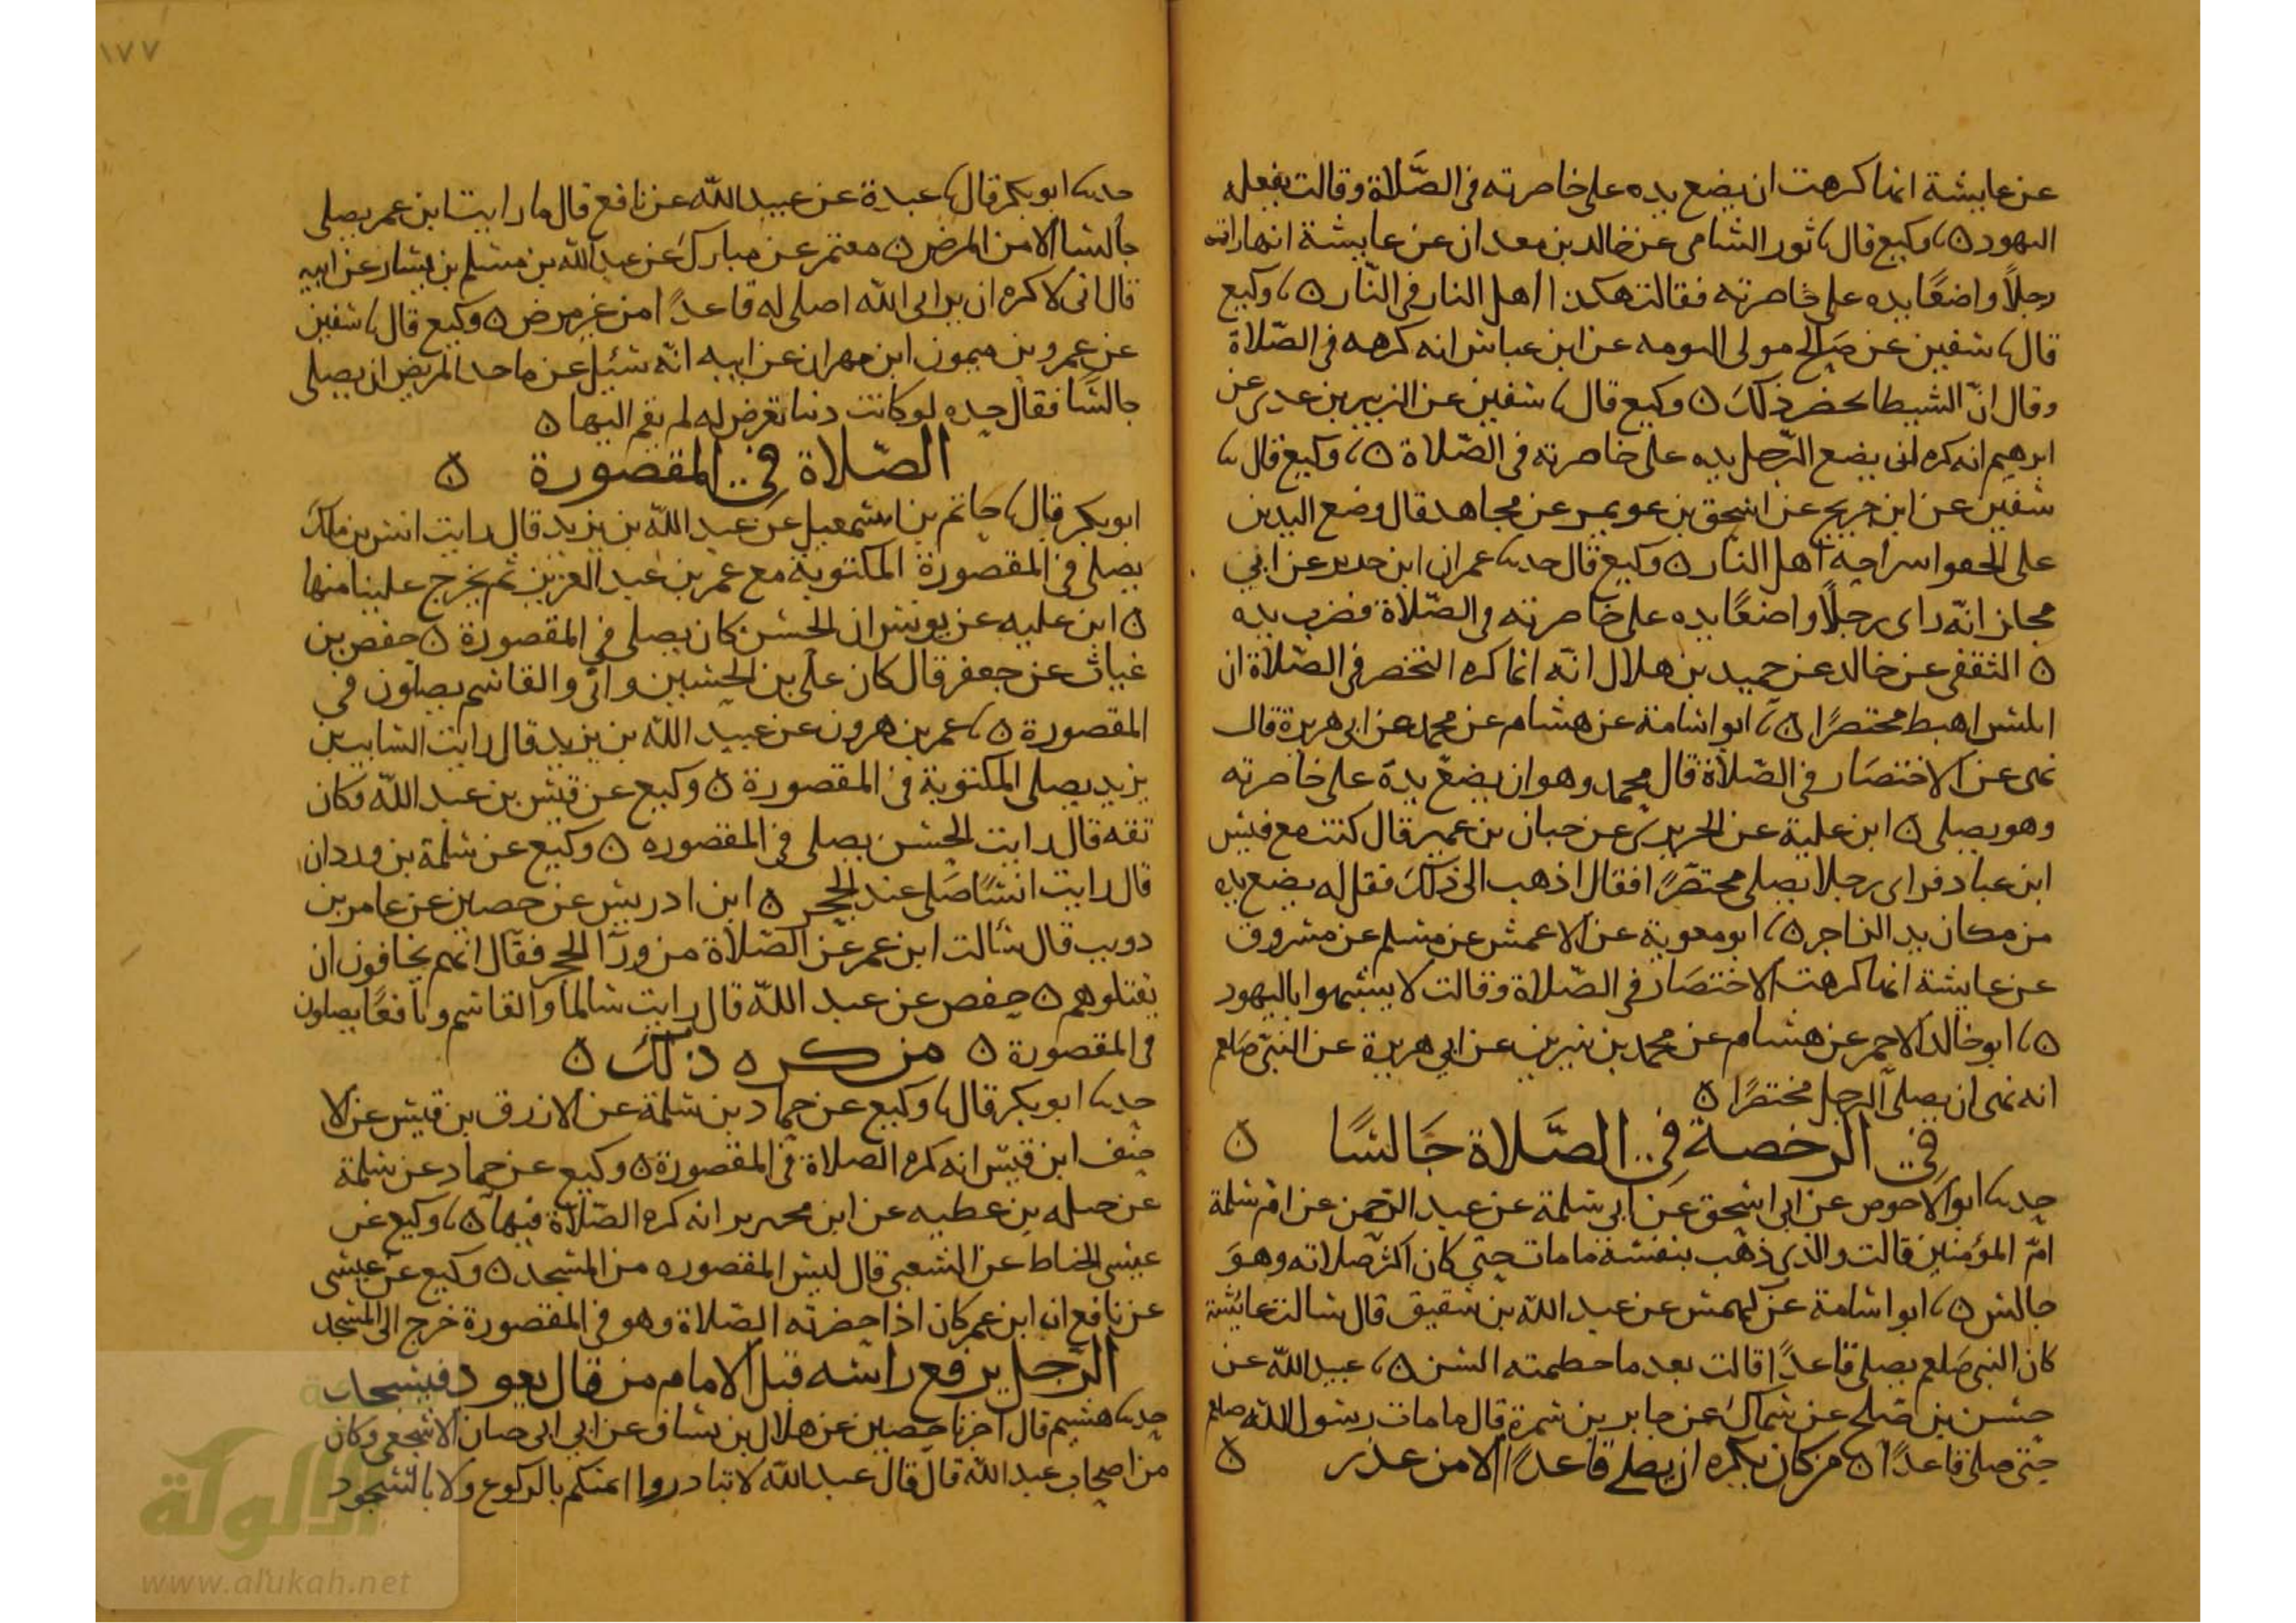 عن عايشة انما كرهت ان يضع يده على خاصرته فى الصلاة وقالت يفعله
اليهود ٥ ثنا وكيع قال ثنا ثور الشامى عن خالد بن معدان عن عايشة انها رات
رجلاً واضعًا يده على خاصرته فقالت هكذا اهل النار فى النار ٥ ثنا وكيع
قال ثنا سفين عن صالح مولى التومه عن ابن عباس انه كرهه فى الصلاة
وقال انّ الشيطا يحضر ذلك ٥ وكيع قال ثنا سفين عن الزبير بن عدى عن
ابرهيم انه كره ان يضع الرّجل يده على خاصرته فى الصّلاة ٥ ثنا وكيع قال ثنا
سفين عن ابن جريج عن اسحق بن عويمر عن مجاهد قال وضع اليدين
على الحقو استراحة اهل النار ٥ وكيع قال حدثنا عمران ابن حدير عن ابى
مجلز انّه راى رجلاً واضعًا يده على خاصرته فى الصّلاة فضرب يده
٥ الثقفى عن خالد عن حميد بن هلال انّه انما كره التخصر فى الصّلاة ان
ابليس اهبط مختصرًا ٥ ثنا ابو اسامة عن هشام عن محمد عن ابى هريرة قال
نهى عن الاختصار فى الصّلاة قال محمد وهو ان يضع يده على خاصرته
وهو يصلى ٥ ابن علية عن الجريرى عن حبان بن عمير قال كنت مع قيس
ابن عباد فراى رجلا يصلى مختصرًا فقال اذهب الى ذلك فقل له يضع يده
من مكان يد الراجز ٥ ثنا ابو معوية عن الاعمش عن مسلم عن مسروق
عن عايشة انما كرهت الاختصار فى الصّلاة وقالت لا يتشبهوا باليهود
٥ ثنا ابو خالد الاحمر عن هشام عن محمد بن سيرين عن ابى هريرة عن النبى صلعم
انه نهى ان يصلى الرجل مختصرًا ٥
فى الرخصة فى الصّلاة جالسًا ٥
حدثنا ابو الاحوص عن ابى اسحق عن ابى سلمة عن عبد الرّحمن عن امّ سلمة
امّ المؤمنين قالت والذى ذهب بنفسه ما مات حتى كان اكثر صلاته وهو
جالس ٥ ثنا ابو اسامة عن كهمس عن عبد اللّه بن شقيق قال سالت عائشة
كان النبى صلعم يصلى قاعدًا قالت بعد ما حطمته السن ٥ ثنا عبيد اللّه عن
حسن بن صلح عن سماك عن جابر بن سمرة قال ما مات رسول اللّه صلعم
حتى صلى قاعدًا ٥ من كان يكره ان يصلى قاعدًا الا من عذر ٥
١٧٧
حدثنا ابو بكر قال ثنا عبدة عن عبيد اللّه عن نافع قال ما رايت ابن عمر يصلى
جالسًا الا من المرض ٥ معتمر عن مبارك عن عبد اللّه بن مسلم بن يسار عن ابيه
قال انى لاكره ان يرانى اللّه اصلى له قاعدًا من غير مرض ٥ وكيع قال ثنا سفين
عن عمرو بن ميمون ابن مهران عن ابيه انّه سئيل عن ما حد المريض ان يصلى
جالسًا فقال حده لو كانت دنيا تعرض له لم يقم اليها ٥
الصّلاة فى المقصورة ٥
ابو بكر قال ثنا حاتم بن اسمعيل عن عبد اللّه بن يزيد قال رايت انس بن ملك
يصلى فى المقصورة المكتوبة مع عمر بن عبد العزيز ثم يخرج علينا منها
٥ ابن عليه عن يونس ان الحسن كان يصلى فى المقصورة ٥ حفص بن
غياث عن جعفر قال كان على بن الحسين وابى والقاسم يصلون فى
المقصورة ٥ ثنا عمر بن هرون عن عبيد اللّه بن يزيد قال رايت السايب بن
يزيد يصلى المكتوبة فى المقصورة ٥ وكيع عن قيس بن عبد اللّه وكان
ثقه قال رايت الحسن يصلى فى المقصوره ٥ وكيع عن سلمة بن وردان
قال رايت انسًا صلى عند الحجر ٥ ابن ادريس عن حصين عن عامر بن
دويب قال سالت ابن عمر عن الصّلاة من ورآ الحجر فقال انهم يخافون ان
يقتلوهم ٥ حفص عن عبد اللّه قال رايت سالما والقاسم ونافعًا يصلون
فى المقصورة ٥ من كره ذلك ٥
حدثنا ابو بكر قال ثنا وكيع عن حماد بن سلمة عن الازرق بن قيس عن الا
حنف ابن قيس انه كره الصلاة فى المقصورة ٥ وكيع عن حماد عن سلمة
عن جبله بن عطيه عن ابن محيريز انه كره الصّلاة فيها ٥ ثنا وكيع عن
عيسى الخناط عن الشعبى قال ليس المقصوره من المسجد ٥ وكيع عن عيسى
عن نافع ان ابن عمر كان اذا حضرته الصّلاة وهو فى المقصورة خرج الى المسجد
الرّجل يرفع راسه قبل الامام من قال يعود فيسجد
حدثنا هشيم قال اخبرنا حصين عن هلال بن يساف عن ابى ابى حيان الاشجعى وكان
من اصحاب عبد اللّه قال قال عبد اللّه لا تبادروا ائمتكم بالركوع ولا بالسّجود
الألوكة
www.alukah.net